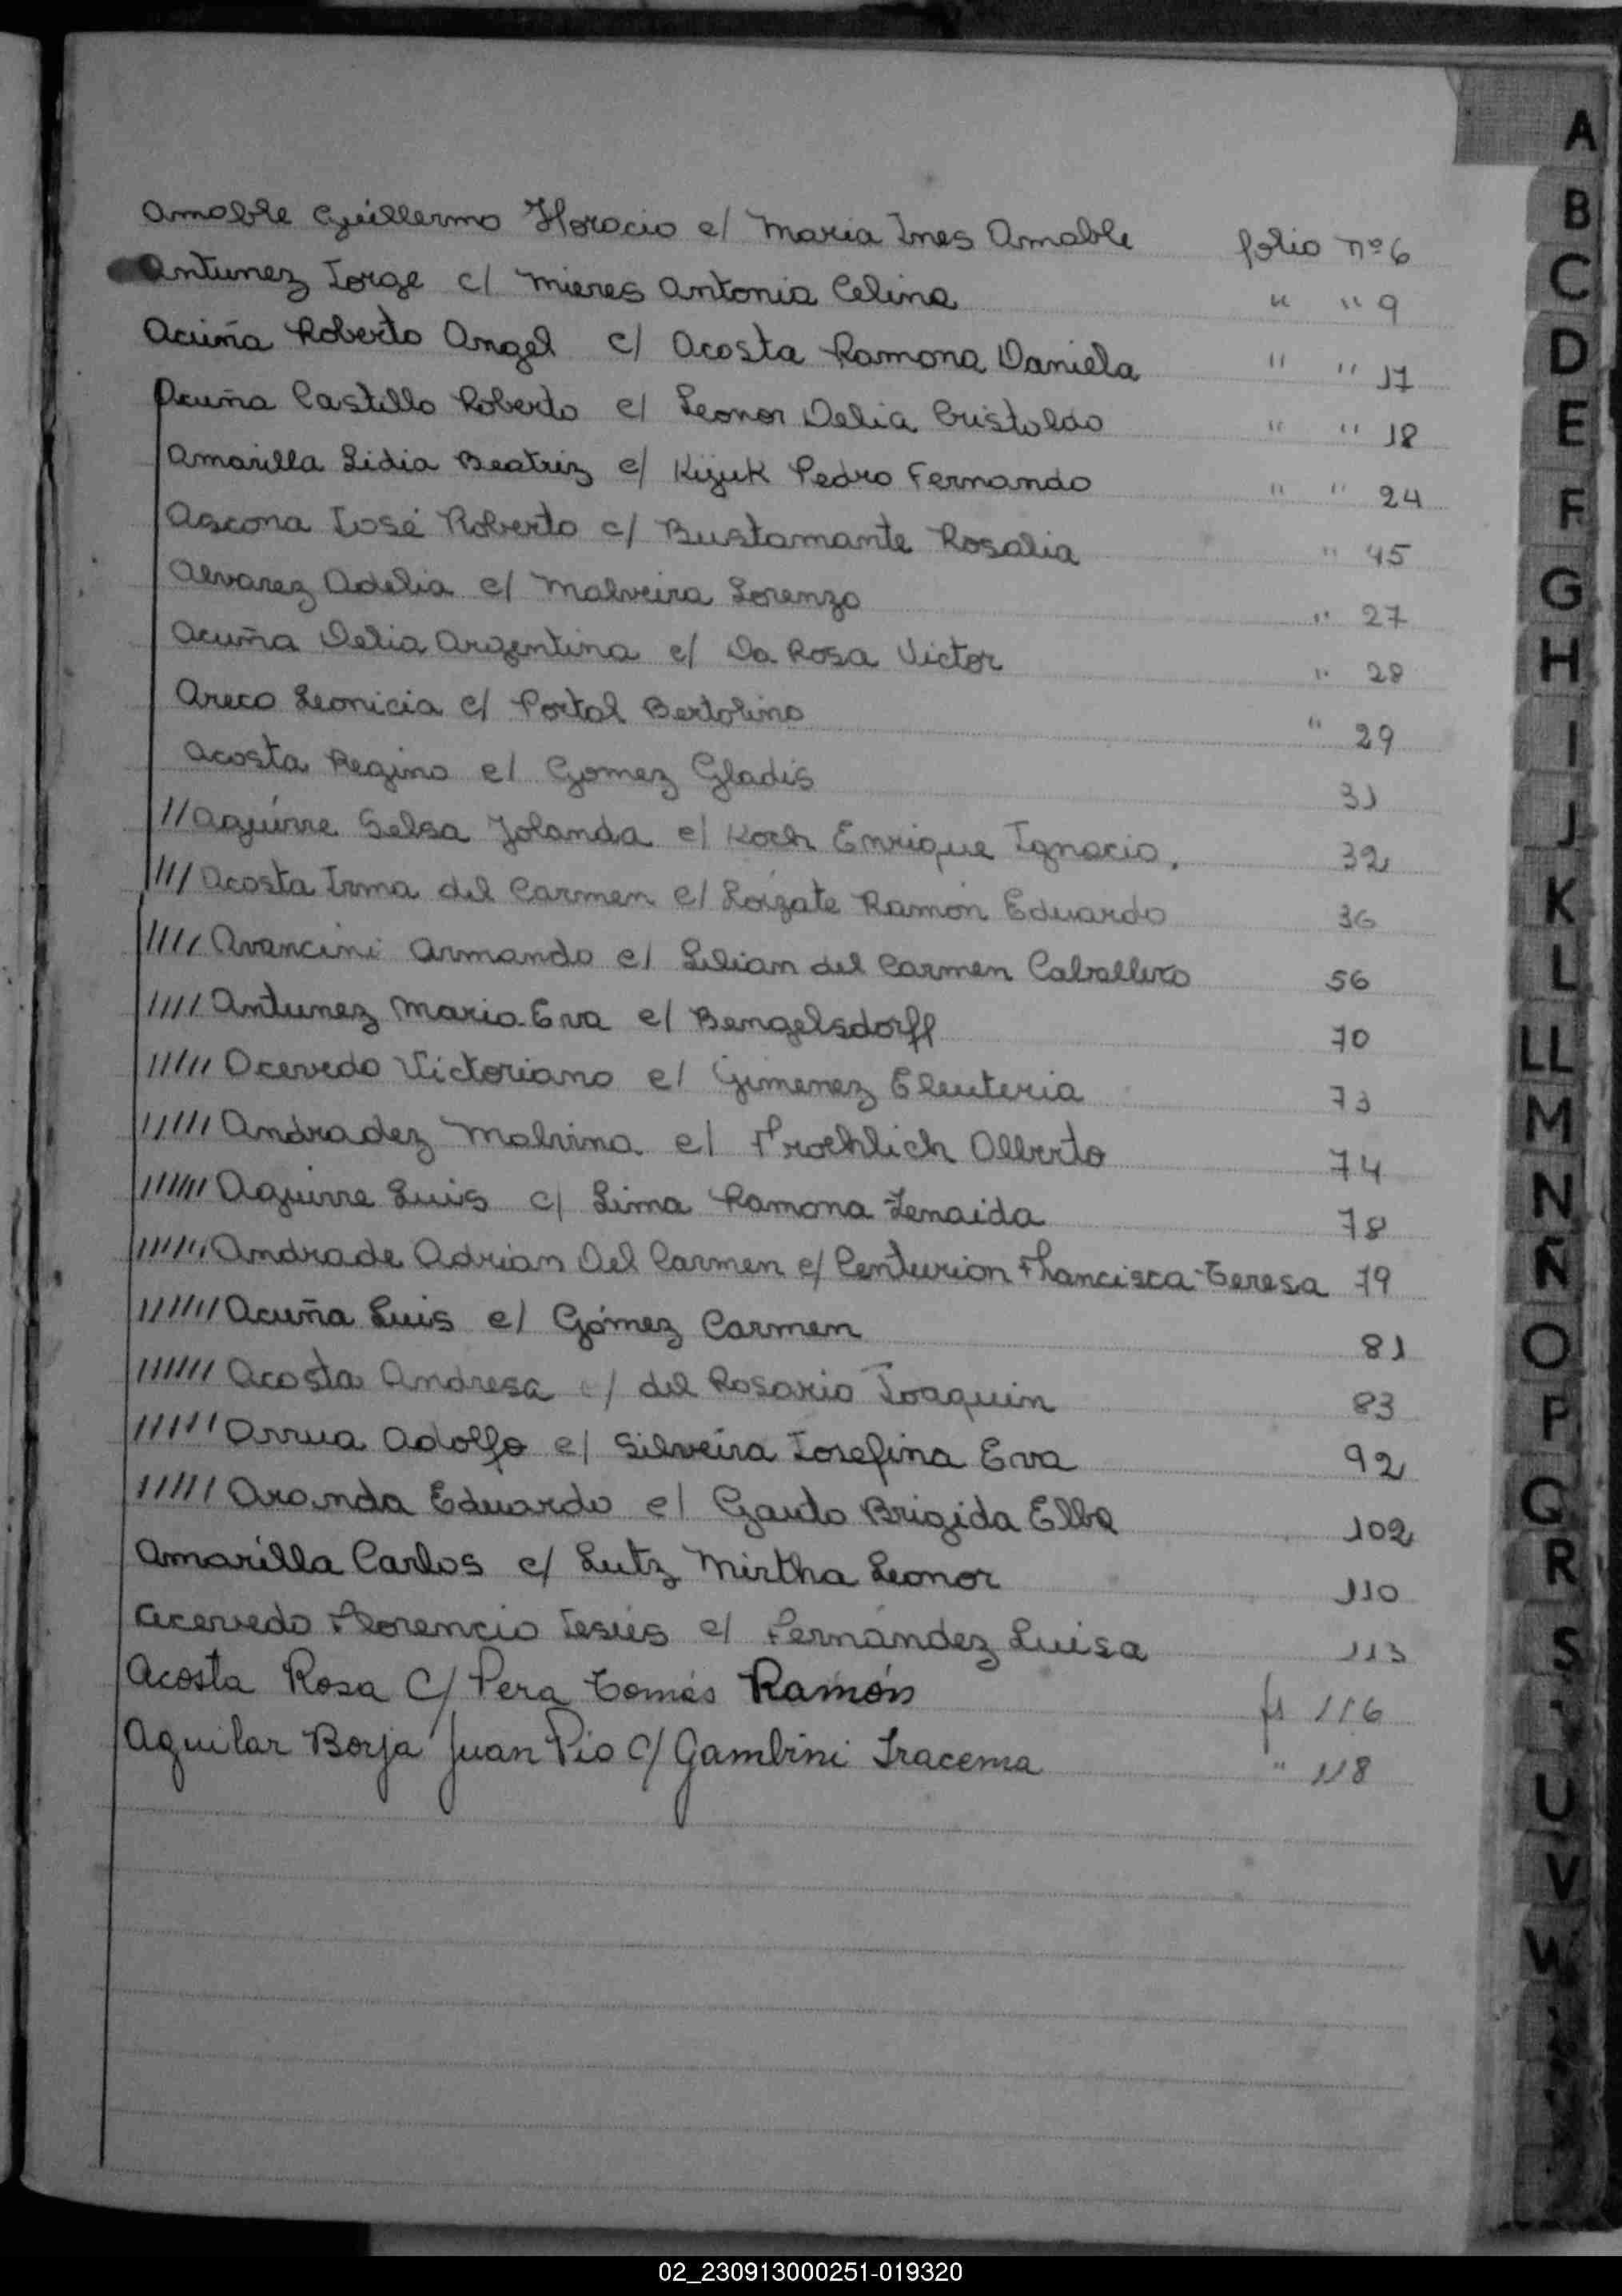 Amable Guillermo Horacio c/ Maria Ines Amable folio nº 6
Antunez Jorge c/ Mieres Antonia Celina " " 9
Acuña Roberto Angel c/ Acosta Ramona Daniela " " 17
Acuña Castillo Roberto c/ Leonor Delia Cristaldo " " 18
Amarilla Lidia Beatriz c/ Kijuk Pedro Fernando " " 24
Ascona José Roberto c/ Bustamante Rosalia " 45
Alvarez Adelia c/ Malveira Lorenzo " 27
Acuña Delia Argentina c/ Da Rosa Victor " 28
Areco Leonicia c/ Portal Bertolino " 29
Acosta Regino c/ Gomez Gladis 31
// Aguirre Selsa Jolanda c/ Koch Enrique Ignacio. 32
/// Acosta Irma del Carmen c/ Loizate Ramón Eduardo 36
//// Avancini Armando c/ Lilian del Carmen Caballero 56
//// Antunez Maria Eva c/ Bengelsdorff 70
///// Acevedo Victoriano c/ Gimenez Eleuteria 73
///// Andradez Malvina c/ Froehlich Alberto 74
////// Aguirre Luis c/ Lima Ramona Zenaida 78
////// Andrade Adrian Del Carmen c/ Centurion Francisca Teresa 79
////// Acuña Luis c/ Gómez Carmen 81
////// Acosta Andresa c/ del Rosario Joaquin 83
////// Arrua Adolfo c/ Silveira Josefina Eva 92
///// Aranda Eduardo c/ Gauto Brigida Elba 102
Amarilla Carlos c/ Lutz Mirtha Leonor 110
Acevedo Florencio Jesús c/ Fernández Luisa 113
Acosta Rosa C/ Pera Tomás Ramón fs 116
Aguilar Borja Juan Pio C/ Gambini Iracema " 118
A
B
C
D
E
F
G
H
I
J
K
L
LL
M
N
Ñ
O
P
Q
R
S
U
V
W
02_230913000251-019320